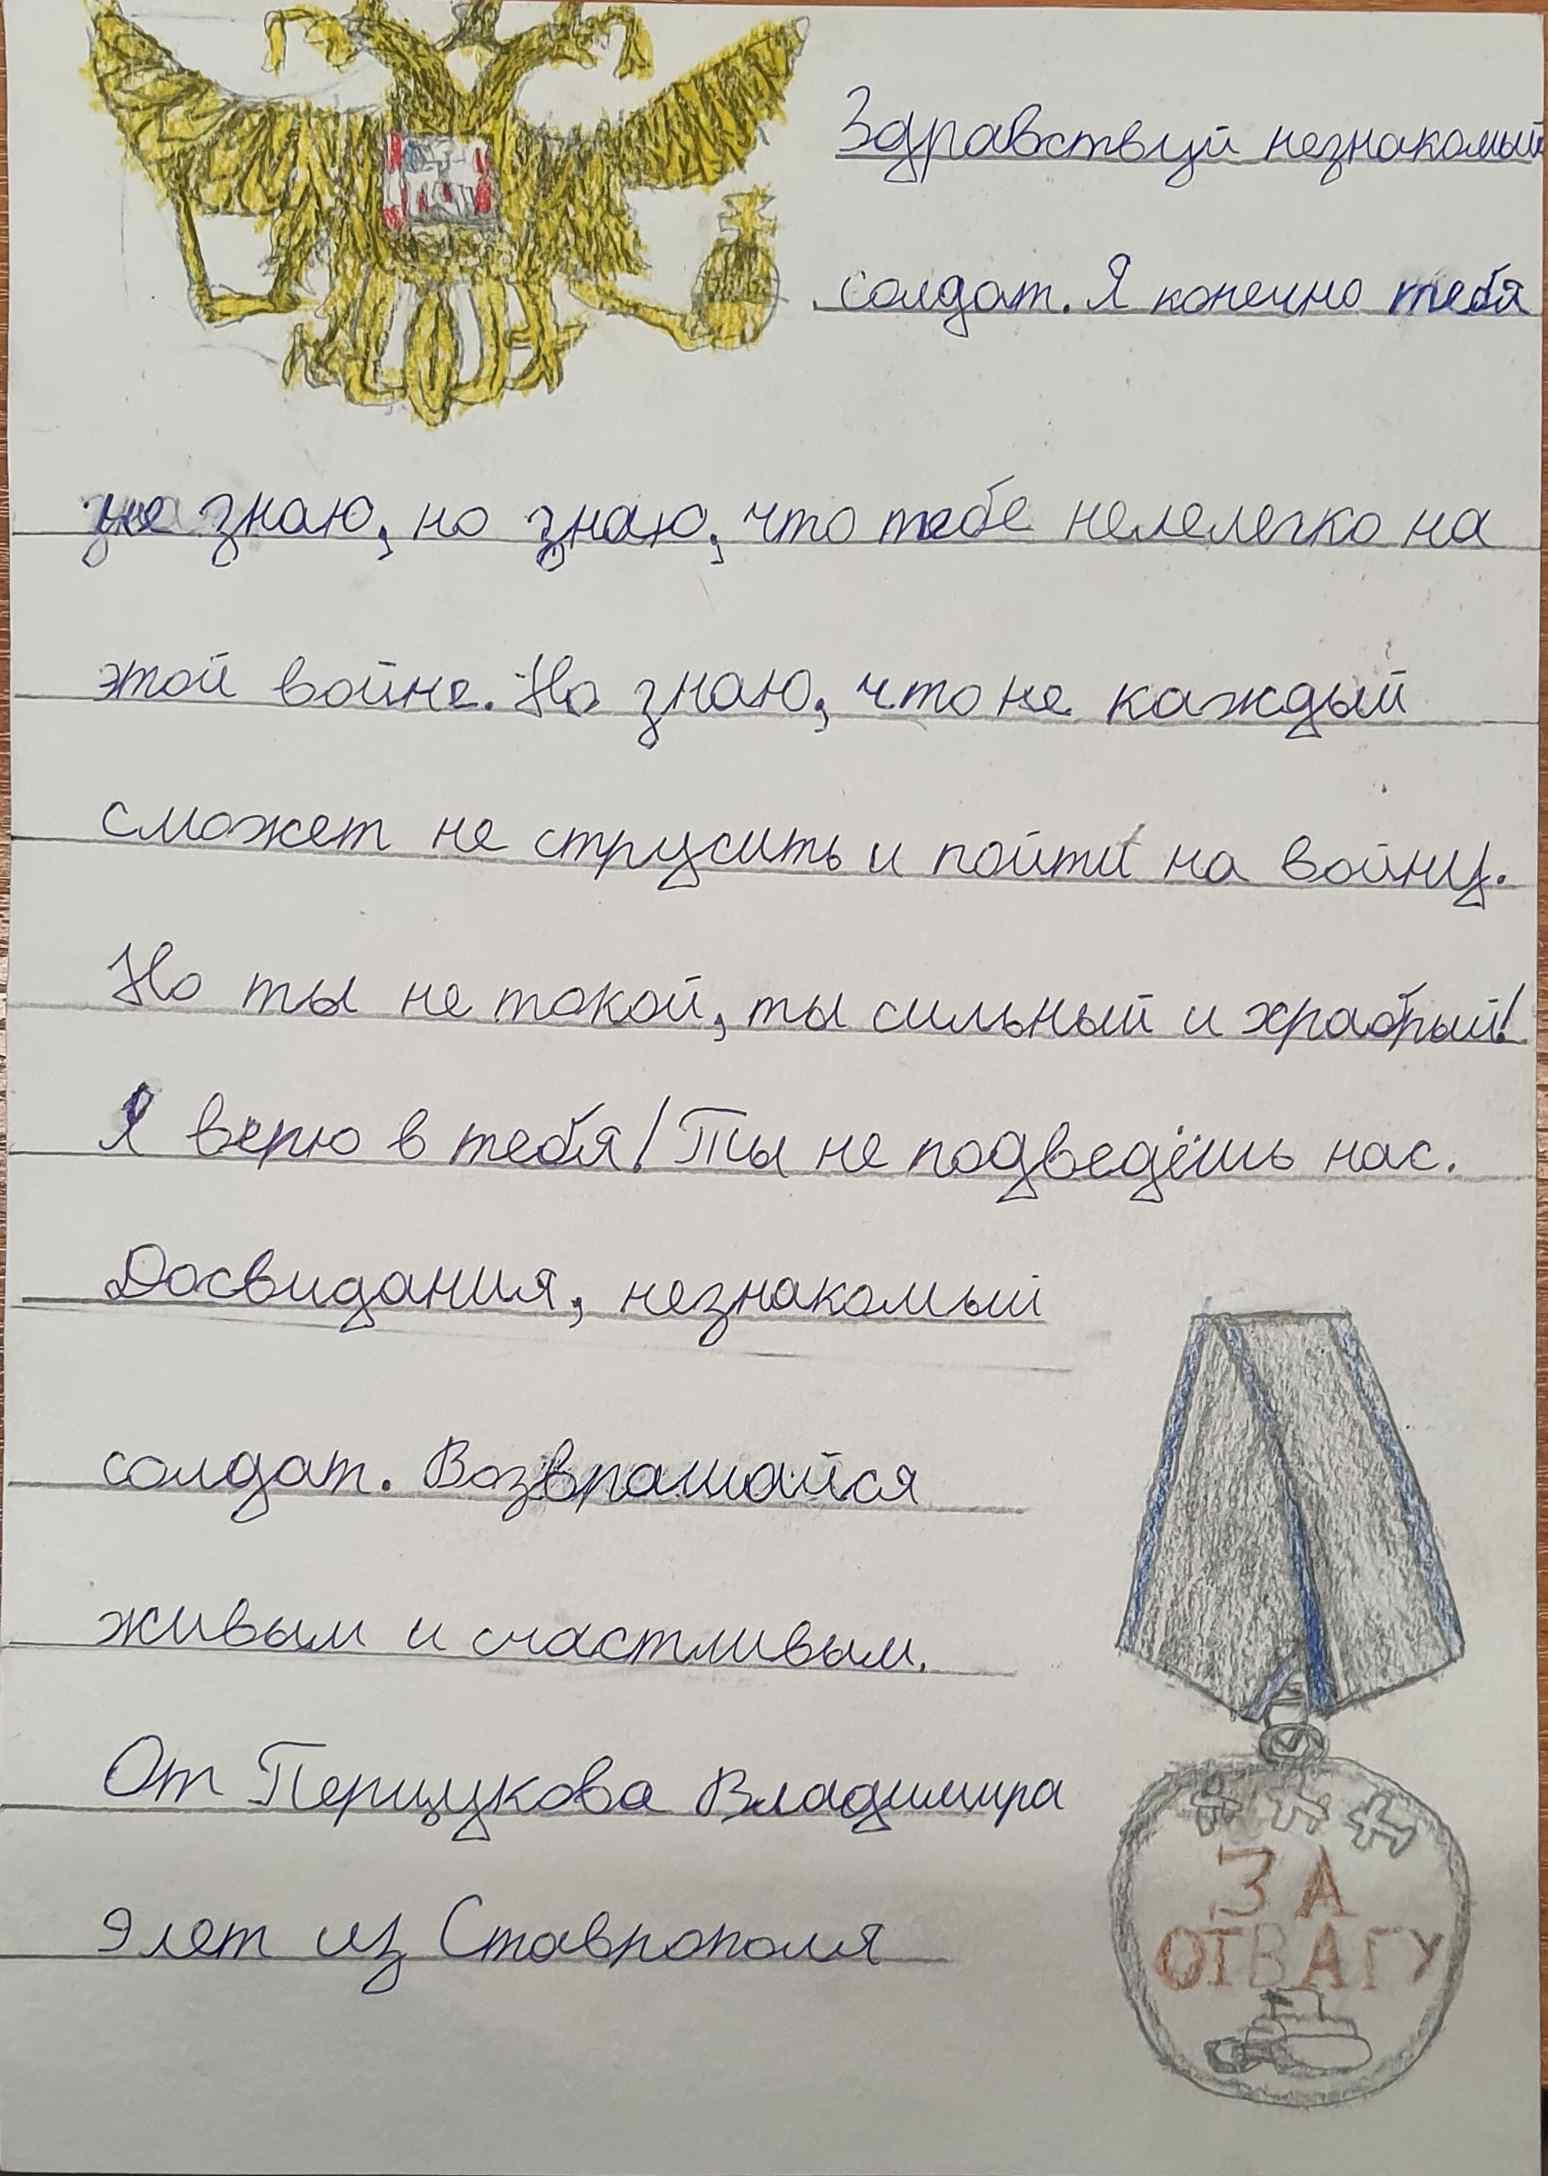 Здравствуй незнакомый
солдат. Я конечно тебя
не знаю, но знаю, что тебе нелелегко на
этой войне. Но знаю, что не каждый
сможет не струсить и пойти на войну.
Но ты не такой, ты сильный и храбрый!
Я верю в тебя! Ты не подведёшь нас.
Досвидания, незнакомый
солдат. Возвращайся
живым и счастливым.
От Перцукова Владимира
9 лет из Ставрополя
ЗА
ОТВАГУ